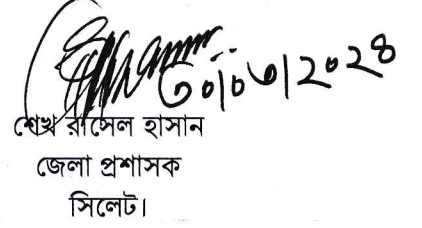 ৩০|০৩|২০২৪
শেখ রাসেল হাসান
জেলা প্রশাসক
সিলেট।